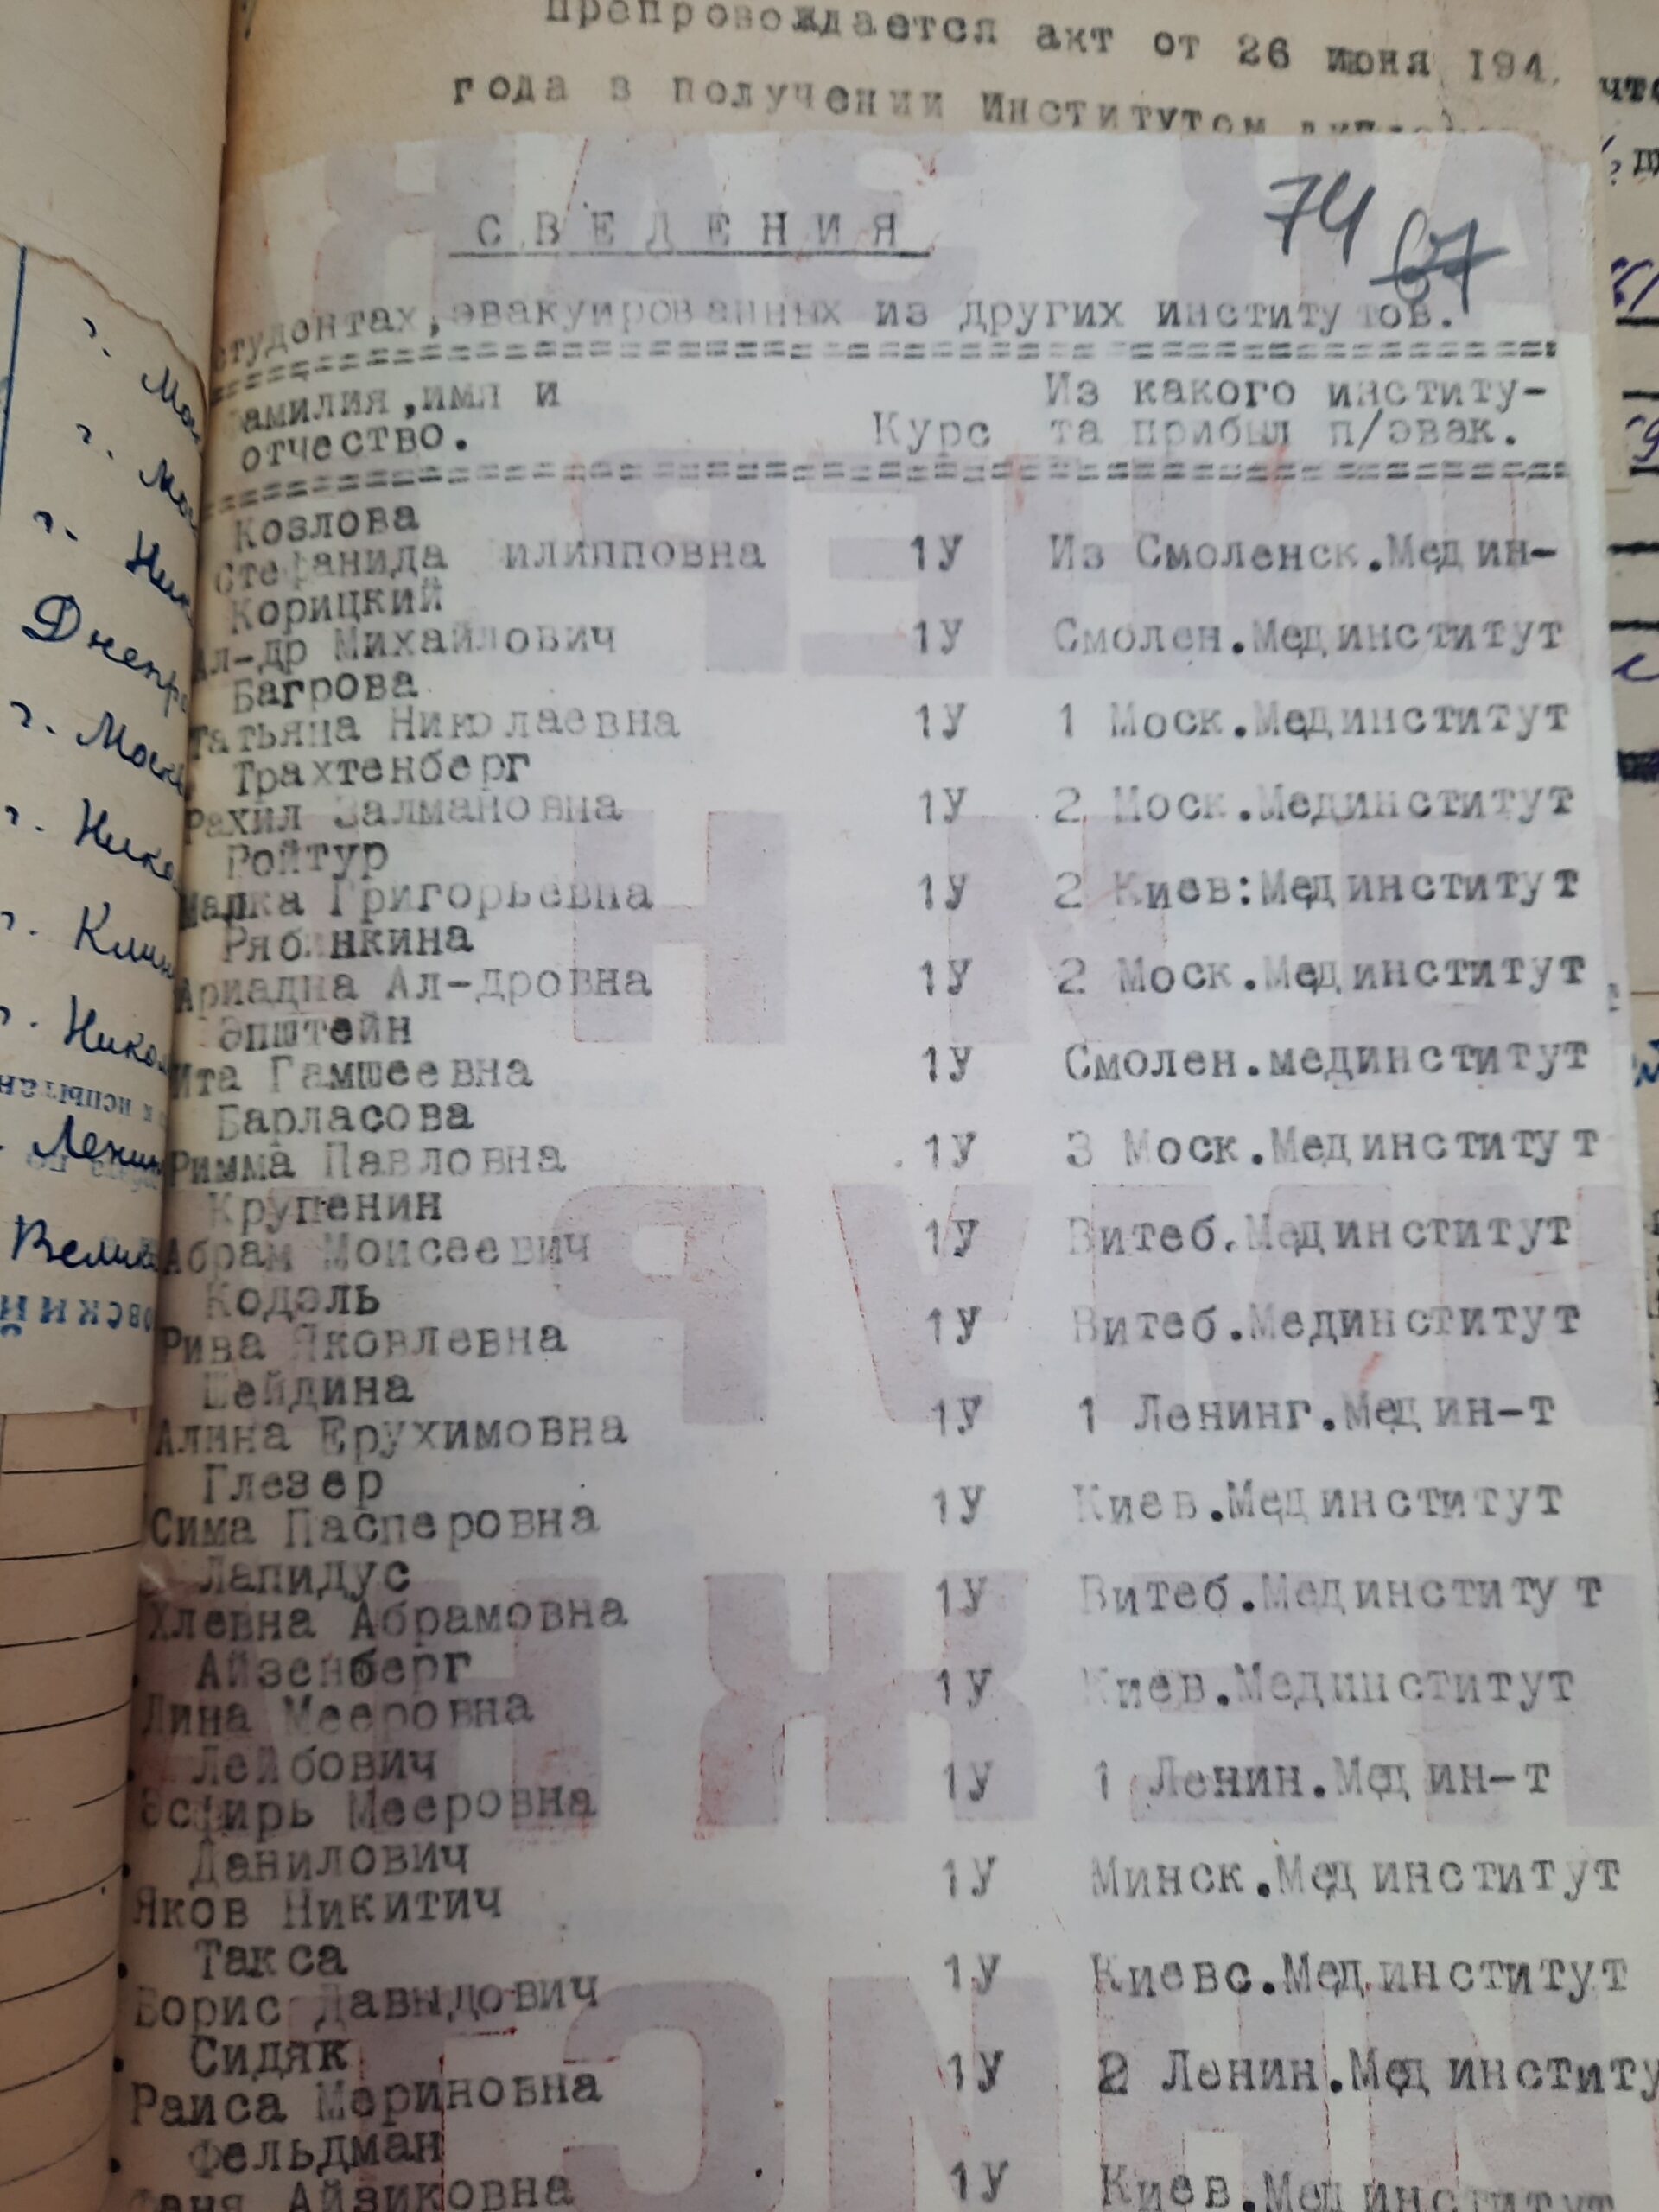 препровождается акт от 26 июня 194
года в получении Институтом
74 67
СВЕДЕНИЯ
студентах, эвакуированных из других институтов.
амилия, имя и
отчество.
Курс
Из какого институ-
та прибыл п/эвак.
Козлова
Стефанида илипповна 1У Из Смоленск.Медин-
Корицкий
Ал-др Михайлович 1У Смолен.Мединститут
Багрова
Татьяна Николаевна 1У 1 Моск.Мединститут
Трахтенберг
Рахил Залмановна 1У 2 Моск.Мединститут
Ройтур
Малка Григорьевна 1У 2 Киев:Мединститут
Ряб нкина
Ариадна Ал-дровна 1У 2 Моск.Мединститут
Эпштейн
Ита Гамшеевна 1У Смолен.мединститут
Барласова
Римма Павловна 1У 3 Моск.Мединститут
Крупенин
Абрам Моисеевич 1У Витеб.Мединститут
Кодэль
Рива Яковлевна 1У Витеб.Мединститут
Шейдина
Алина Ерухимовна 1У 1 Ленинг.Медин-т
Глезер
Сима Пасперовна 1У Киев.Мединститут
Лапидус
Хлевна Абрамовна 1У Витеб.Мединститут
Айзенберг
Лина Мееровна 1У Киев.Мединститут
Лейбович
Эсфирь Мееровна 1У 1 Ленин.Медин-т
Данилович
Яков Никитич 1У Минск.Мединститут
Такса
Борис Давыдович 1У Киевс.Мединститут
Сидяк
Раиса Мериновна 1У 2 Ленин.Мединститу
Фельдман
Фаня Айзиковна 1У Киев.Мединститут
г. Мос
г. Мос
г. Ник
Днепро
г. Моск
г. Нико
г. Клин
г. Никол
Ленин
Велик